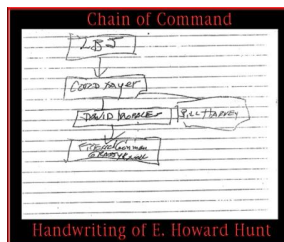 Chain of Command
LBJ
CORD Mayer
DAVID MORALES
BILL HARVEY
FRENCH Gunman
GRASSY KNOLL
Handwriting of E. Howard Hunt